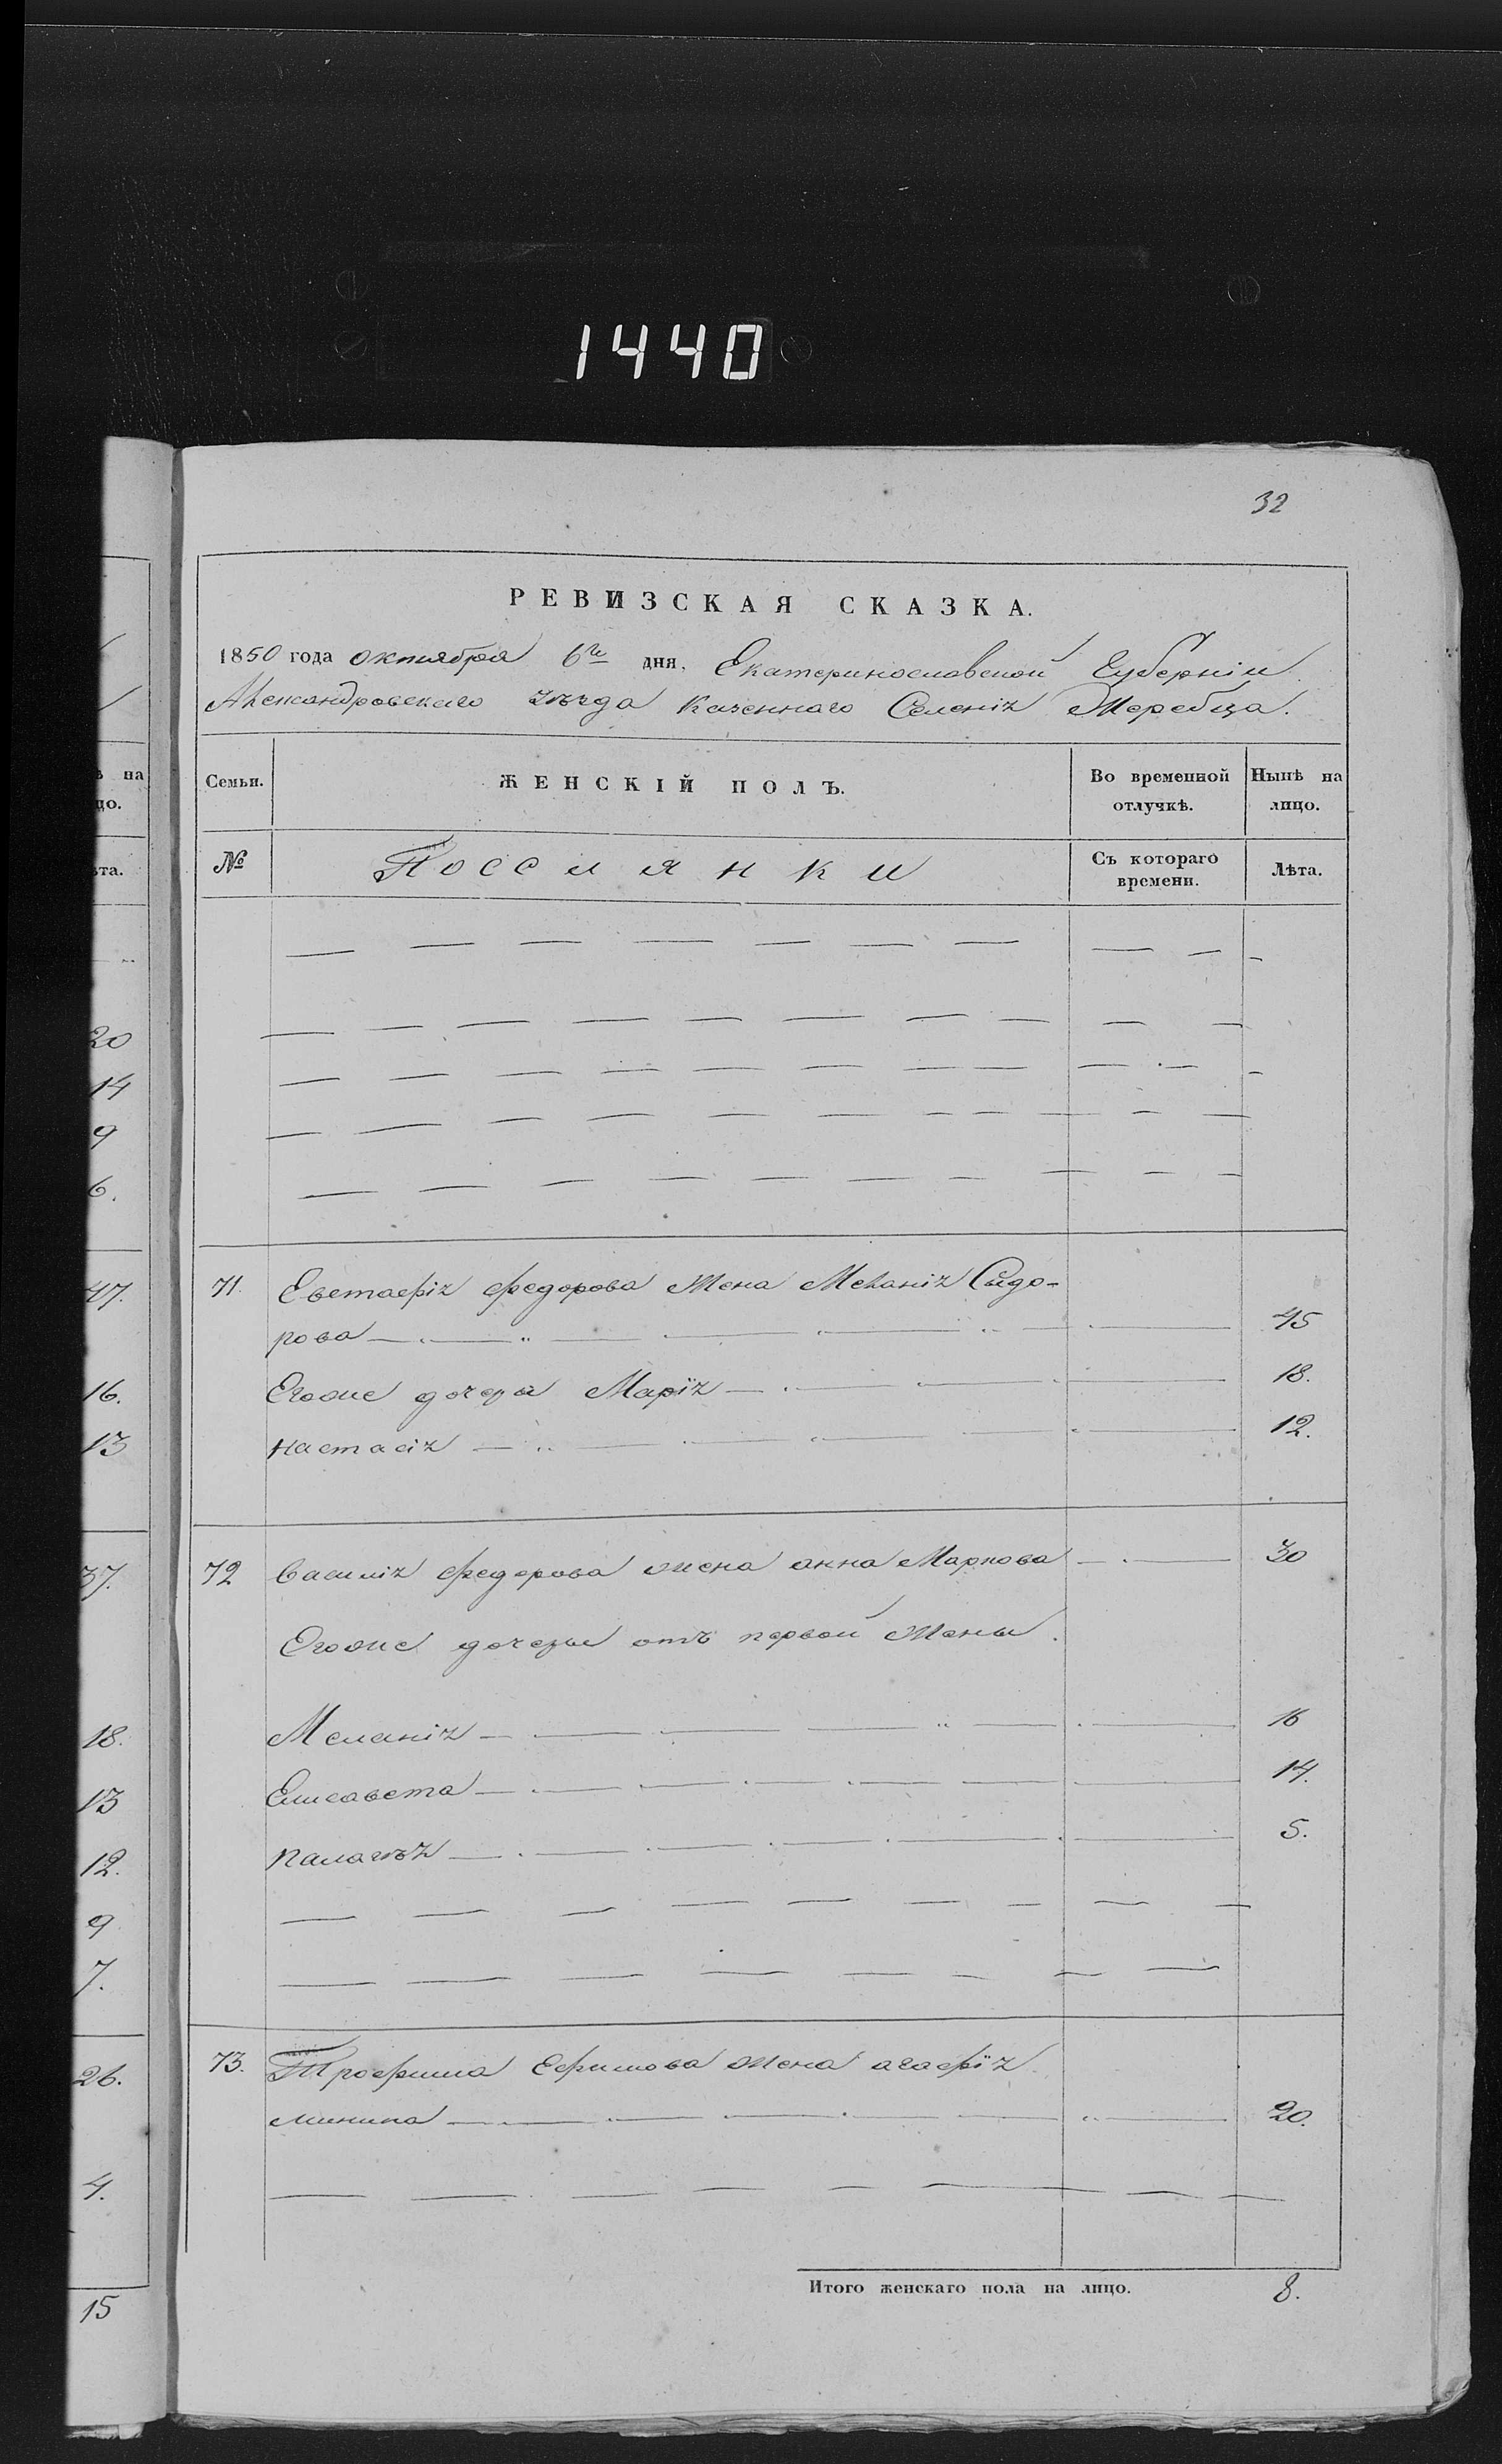 1440
32
РЕВИЗСКАЯ СКАЗКА.
1850 года октября 6го дня. Екатеринославской Губерніи
Александровскаго уѣзда Казеннаго Селенія Жеребца.
ѣ на
цо.
Семьи. ЖЕНСКІЙ ПОЛЪ. Во временной отлучкѣ. Нынѣ на лицо.
ѣта.
№ Поселянки Съ котораго времени. Лѣта.
20
14
9
6.
47. 71. Евстафія Федорова Жена Меланія Сидо-
рова 45
16. Егоже дочери Марія 18.
13 Настасія 12.
37. 72 Василія Федорова жена анна Маркова 30
Егоже дочери отъ первой Жены.
18. Меланія 16
13 Елисавета 14.
12. Палагѣя 5.
9
7.
26. 73. Трофима Ефимова жена агафія
минина 20.
4.
15 Итого женскаго пола на лицо. 8.